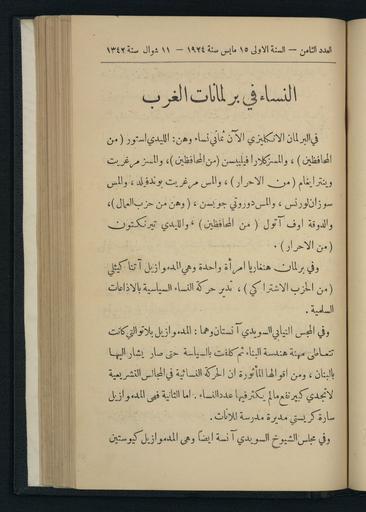 العدد الثامن — السنة الاولى ١٥ مايس سنة ١٩٢٤ — ١١ شوال سنة ١٣٤٢
النساء في برلمانات الغرب
في البرلمان الانكليزي الآن ثماني نساء وهن: الليدي استور (من
المحافظين)، والمسز كلارا فيليبسن (من المحافظين)، والمسز مرغريت
وينترايغام (من الاحرار)، والمس مرغريت بوندفيلد، والمس
سوزان لورنس، والمس دوروتي جويسن، (وهن من حزب العمال)،
والدوقة اوف آتول (من المحافظين) والليدي تيرنكتون
(من الاحرار).
وفي برلمان هنغاريا امرأة واحدة وهي المدموازيل آنا كيثلي
(من الحزب الاشتراكي)، تدير حركة النساء السياسية بالاذاعات
السلمية.
وفي المجلس النيابي السويدي آنستان وهما: المدموازيل بلاتو التي كانت
تتعاطى مهنة هندسة البناء ثم كلفت بالسياسة حتى صار يشار اليها
بالبنان، ومن اقوالها المأثورة ان الحركة النسائية في المجالس التشريعية
لا تجدي كبير نفع مالم يكثر فيها عدد النساء. اما الثانية فهي المدموازيل
سارة كريستي مديرة مدرسة للاناث.
وفي مجلس الشيوخ السويدي آنسة ايضاً وهي المدموازيل كيوستين